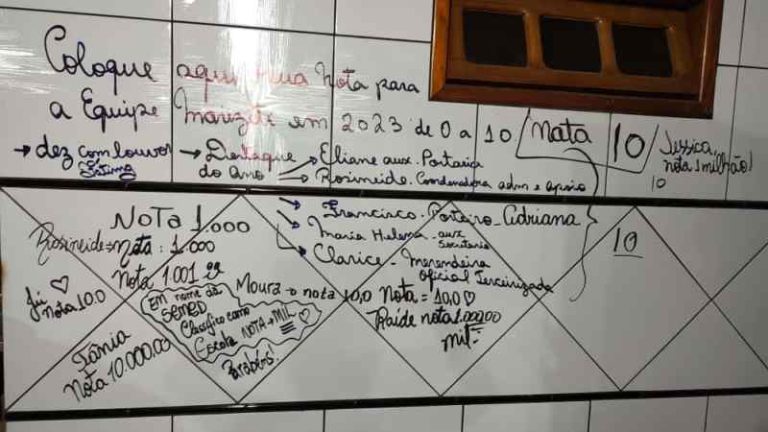 Coloque aqui tua Nota para
a Equipe Marizete em 2023 de 0 a 10
Nata 10
Jessica
nota 1 milhão!
10
→ dez com louvor
Fátima
→ Destaque
do ano
→ Eliane aux. Portaria
→ Rosineide. Coordenadora adm e apoio
→ Francisco. Porteiro - Adriana
→ Maria Helena - aux
Secretaria
→ Clarice - Merendeira
Oficial Terceirizada
10
NOTA 1.000
Rosineide = Nota: 1.000
Nota 1.001
Ju ♡
Nota 10.0
Tânia
Nota 10.000,00
Em nome da
SEMED
Classifico como
Escola NOTA + MIL
♡
Parabéns!
Moura - o nota 10,0
Nota = 10,0 ♡
Raide nota 1.000,00
mil